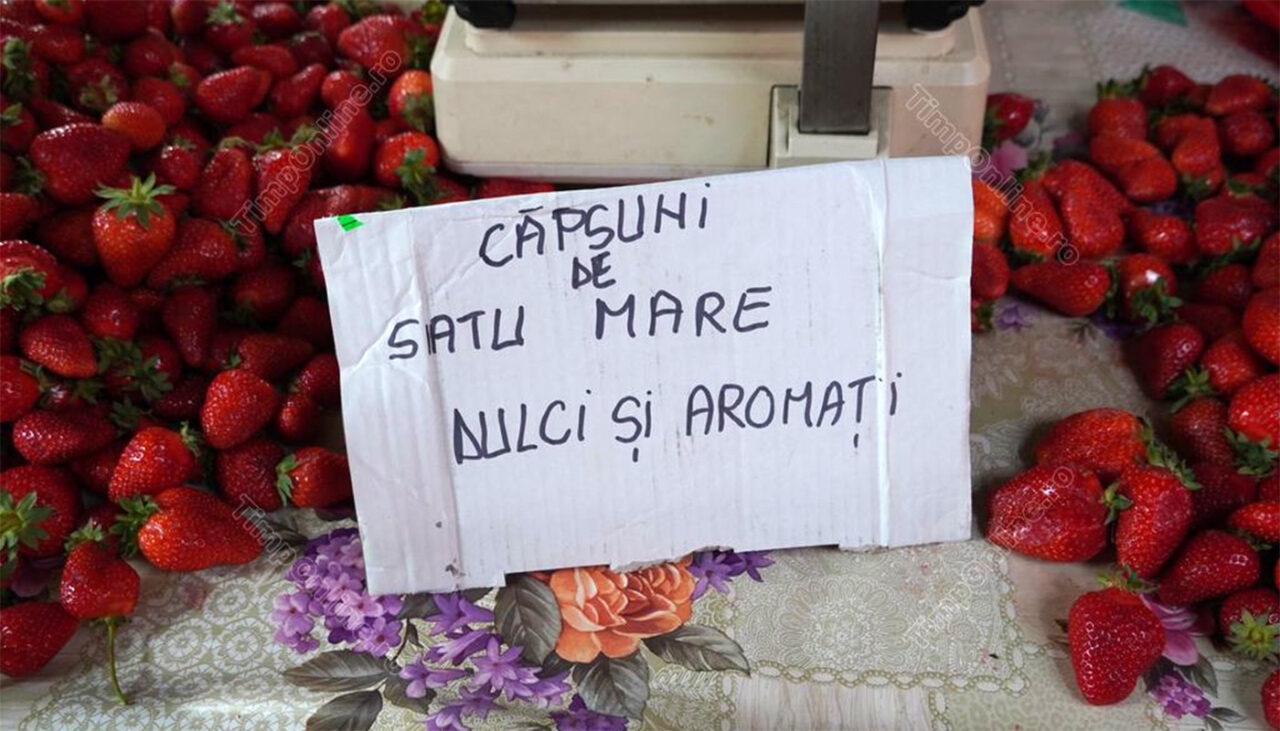 CĂPȘUNI
DE
SATU MARE
DULCi Și AROMAȚi
TimpOnline.ro
TimpOnline.ro
TimpOnline.ro
TimpOnline.ro
TimpOnline.ro